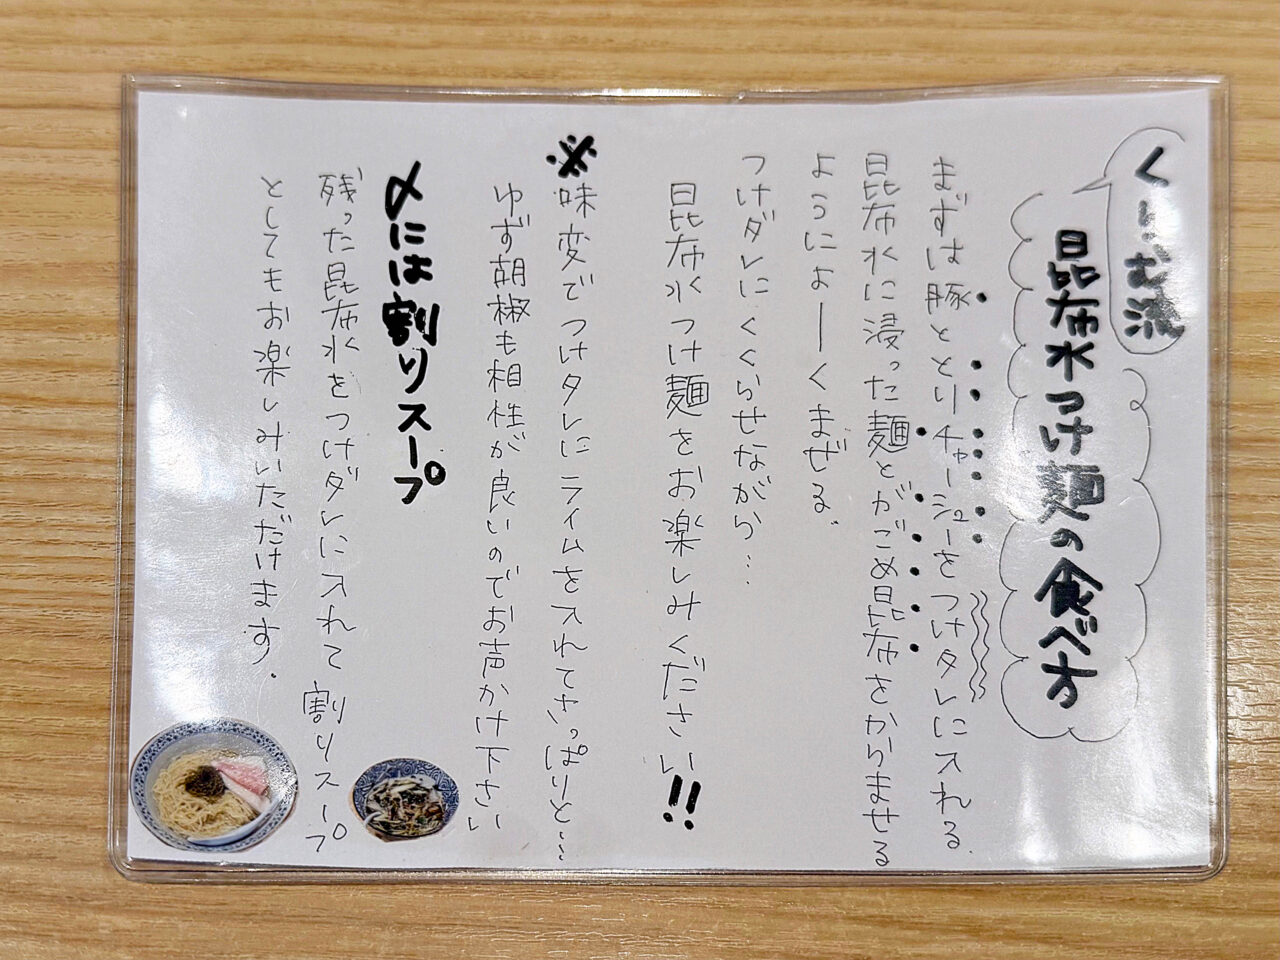 流
昆布水つけ麺の食べ方
まずは豚ととりチャーシューをつけタレに入れる。
昆布水に浸った麺とがごめ昆布をからませる
ようによーくまぜる。
つけダレにくぐらせながら…
昆布水つけ麺をお楽しみください!!
※味変でつけタレにライムを入れてさっぱりと…
ゆず朝椒も相性が良いのでお声かけ下さい
〆には割りスープ
残った昆布水をつけダレに入れて割りスープ
としてもお楽しみいただけます。